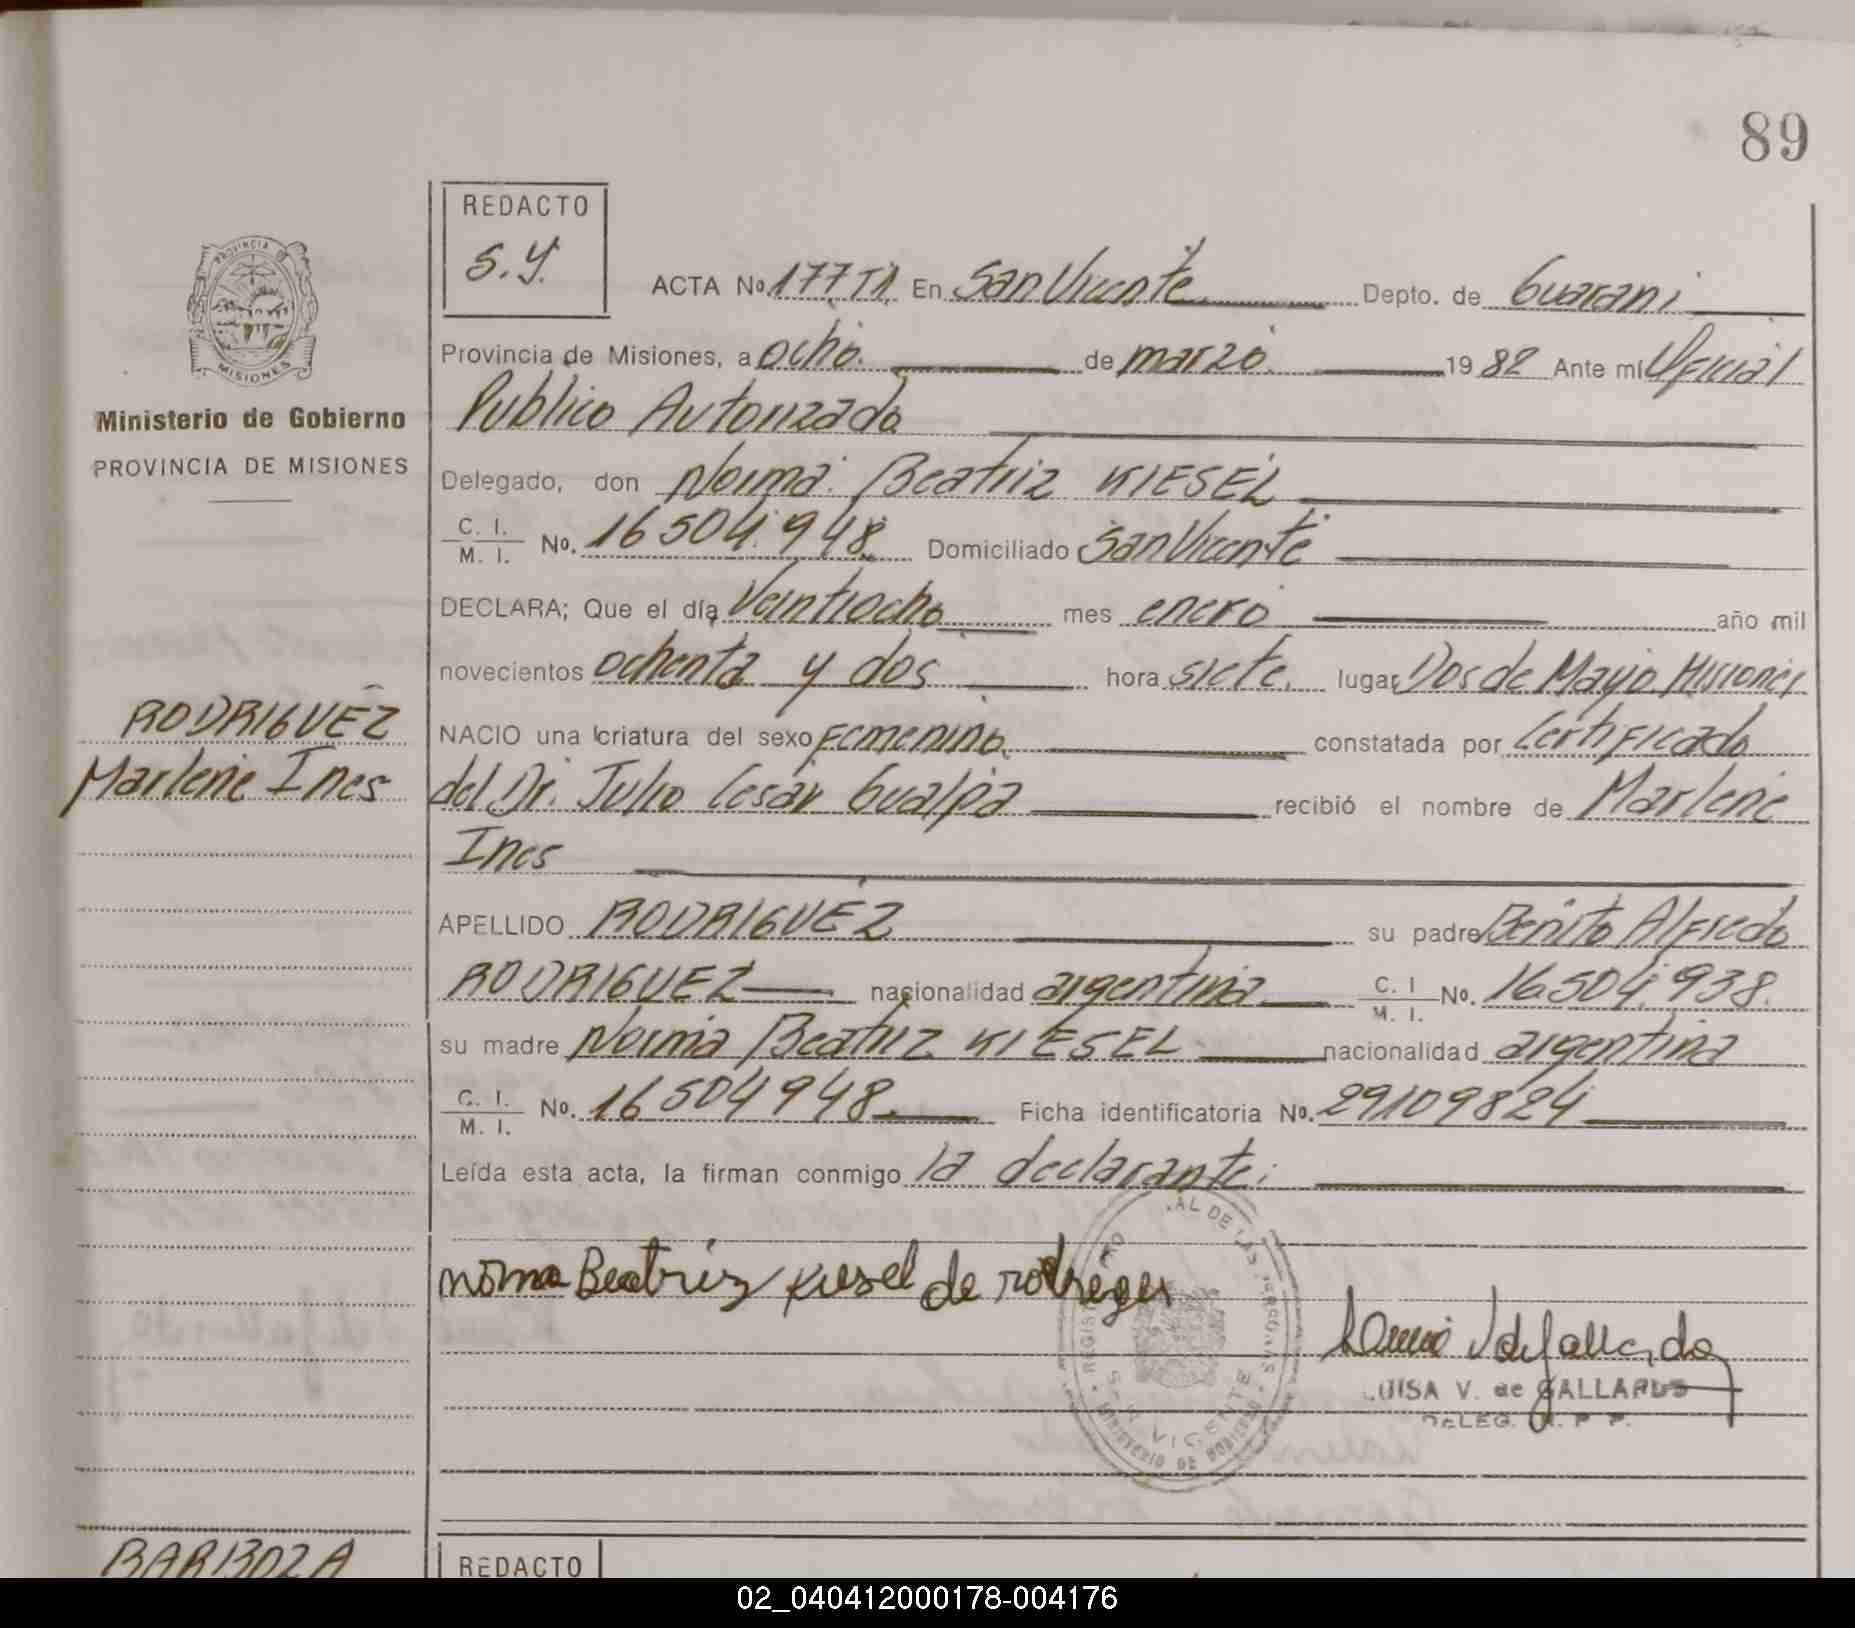 89
REDACTO
S.Y.
ACTA No. 177 T1 En San Vicente Depto. de Guarani
Provincia de Misiones, a ocho de marzo 1982 Ante mi Oficial
Publico Autorizado
PROVINCIA DE
MISIONES
Ministerio de Gobierno
PROVINCIA DE MISIONES
Delegado, don Norma Beatriz KIESEL
C. I.
M. I. No. 16504.948 Domiciliado San Vicente
DECLARA; Que el día Veintiocho mes enero año mil
novecientos ochenta y dos hora siete lugar Dos de Mayo Misiones
RODRIGUEZ
Marlene Ines
NACIO una criatura del sexo femenino constatada por Certificado
del Dr. Julio Cesar Gualpa recibió el nombre de Marlene
Ines
APELLIDO RODRIGUEZ su padre Benito Alfredo
RODRIGUEZ nacionalidad argentina C. I
M. I. No. 16.504.938.
su madre Norma Beatriz KIESEL nacionalidad argentina
C. I.
M. I. No. 16504948 Ficha identificatoria No. 29109824
Leída esta acta, la firman conmigo la declarante:
norma Beatriz kiesel de
LUISA V. de GALLARDO
DELEG. R. P. P.
REGISTRO AL DE LAS PERSONAS
SAN VICENTE
MINISTERIO DE GOBIERNO
BARBOZA
REDACTO
02_040412000178-004176